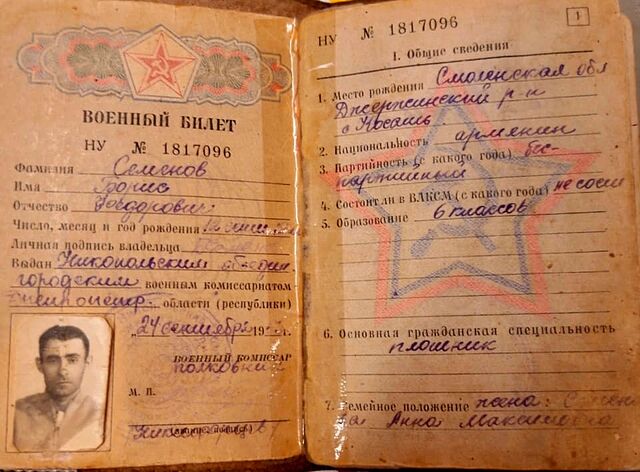 ВОЕННЫЙ БИЛЕТ
НУ № 1817096
Фамилия Семенов
Имя Борис
Отчество Федорович
Число, месяц и год рождения
Личная подпись владельца
Выдан Никопольским объедин
городским военным комиссариатом
Днепропетр. области (республики)
„24 сентября 19
ВОЕННЫЙ КОМИССАР
полковник
М. П.
(подпись)
НУ № 1817096
1
I. Общие сведения
1. Место рождения Смоленская обл
Дзержинский р-н
с
2. Национальность армянин
3. Партийность (с какого года) бес-
партийный
4. Состоял ли в ВЛКСМ (с какого года) не сост
5. Образование 6 классов
6. Основная гражданская специальность
плотник
7. Семейное положение жена: Семено
ва Анна Максимовна